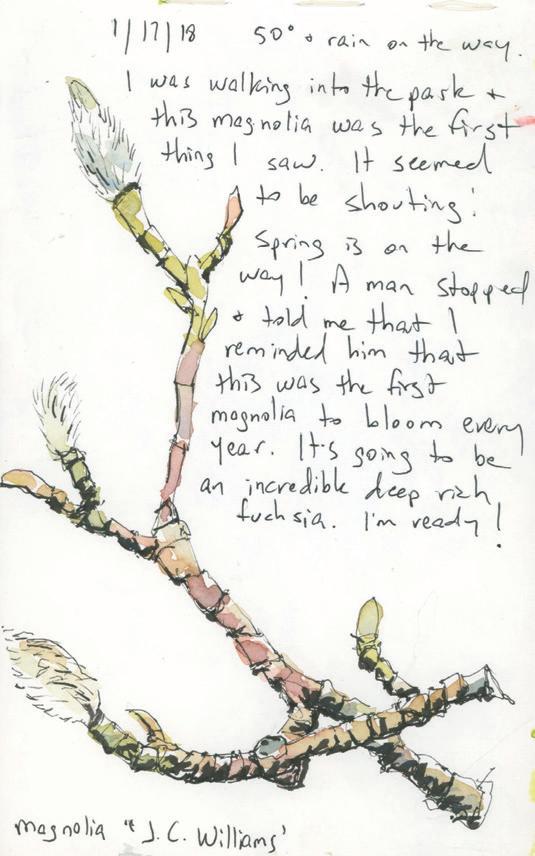 1/17/18 50° + rain on the way.
I was walking into the park +
this magnolia was the first
thing I saw. It seemed
to be shouting!
Spring is on the
way! A man stopped
+ told me that I
reminded him that
this was the first
magnolia to bloom every
year. It's going to be
an incredible deep rich
fuchsia. I'm ready!
magnolia "J.C. Williams'